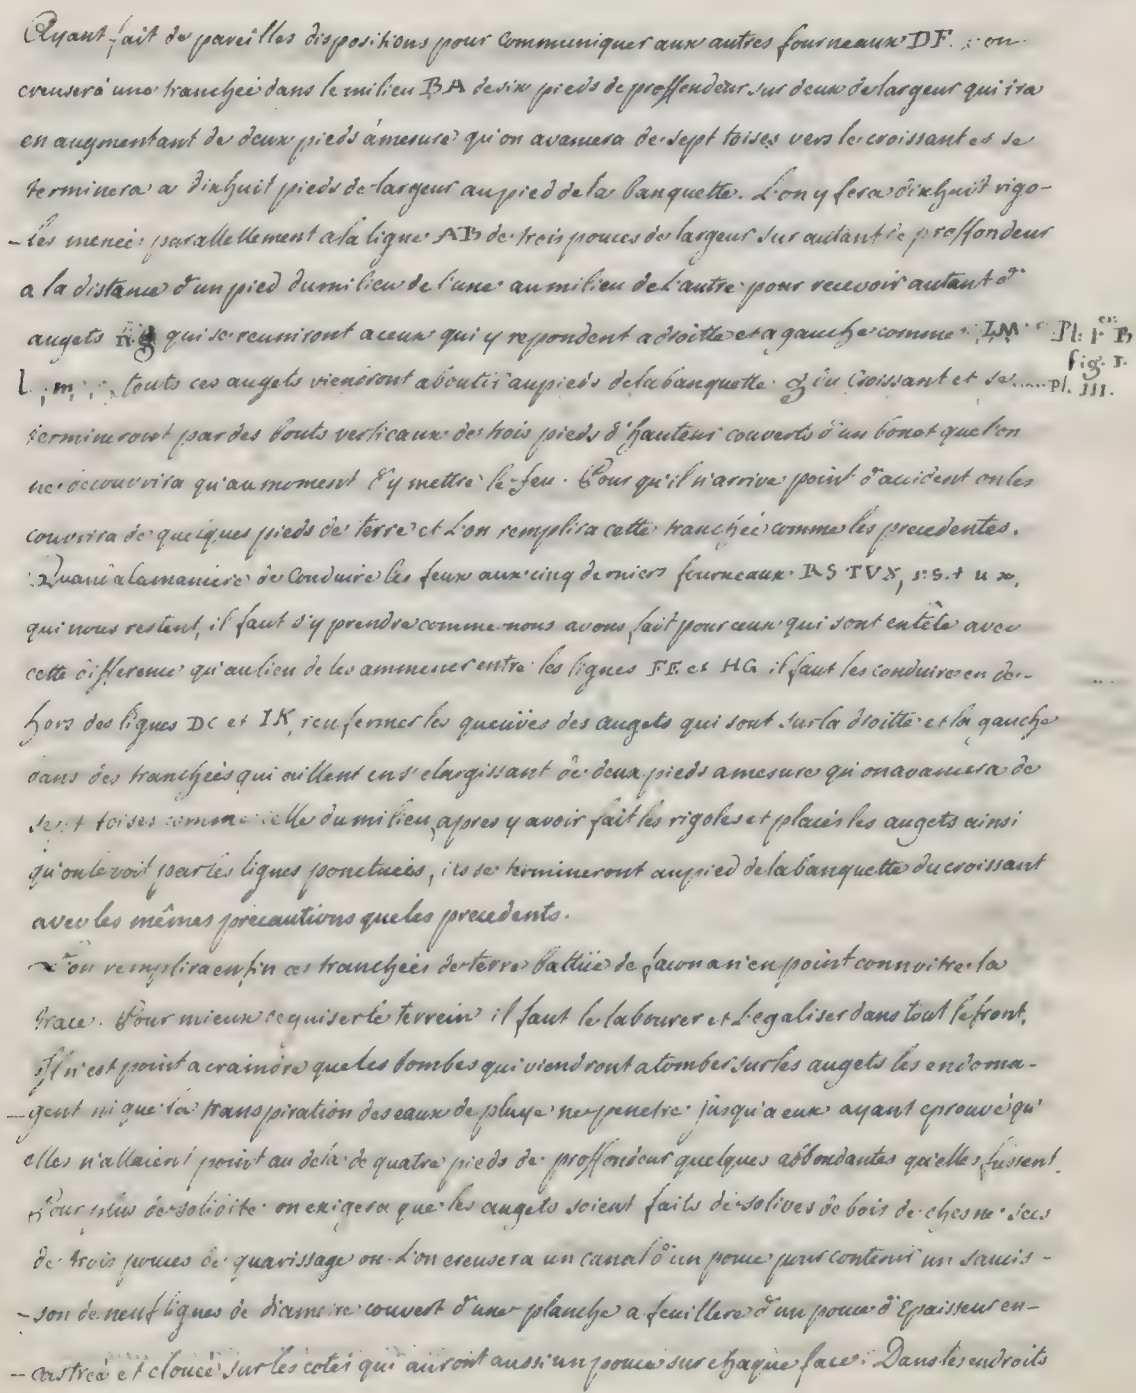 Ayant fait de pareilles dispositions pour communiquer aux autres fourneaux DF. on
creusera une tranchée dans le milieu BA de six pieds de proffendeur sur deux de largeur qui ira
en augmentant de deux pieds a mesure qu'on avancera de sept toises vers le croissant et se
terminera a dixhuit pieds de largeur au pied de la banquette. L'on y fera dixhuit rigo-
-les menés parallellement a la ligne AB de trois pouces de largeur sur autant de proffondeur
a la distance d'un pied du milieu de l'une au milieu de l'autre pour recevoir autant d'
augets qui se reuniront a ceux qui y repondent a droitte et a gauche comme LM Pl. 1.er B
l, m, touts ces augets viendront aboutir au pieds de la banquette g du Croissant et se..... fig. I.
pl. III.
termineront par des bouts verticaux de trois pieds d'hauteur couverts d'un bonet que l'on
ne decouvrira qu'au moment d'y mettre le feu. Pour qu'il n'arrive point d'accident on les
couvrira de quelques pieds de terre et L'on remplira cette tranchée comme les precedentes.
Quand a la maniere de Conduire les feux aux cinq derniers fourneaux RSTVX, r.s.t u x,
qui nous restent, il faut s'y prendre comme nous avons fait pour ceux qui sont en tête avec
cette difference qu'au lieu de les ammener entre les lignes FE et HG il faut les conduire en de-
hors des lignes DC et IK, renfermer les queuües des augets qui sont sur la droitte et la gauche
dans des tranchées qui aillent en s'elargissant de deux pieds a mesure qu'on avancera de
sept toises comme celle du milieu, apres y avoir fait les rigoles et placés les augets ainsi
qu'on le voit par les lignes ponctuées, ils se termineront au pied de la banquette du croissant
avec les mêmes précautions que les precedents.
L'on remplira enfin ces tranchées de terre battüe de facon a n'en point connoitre la
trace. Pour mieux deguiser le terrein il faut le labourer et L'egaliser dans tout le front.
Il n'est point a craindre que les bombes qui viendront a tomber sur les augets les endoma-
-gent ni que la transpiration des eaux de pluye ne penetre jusqu'a eux ayant eprouvé qu'
elles n'allaient point au dela de quatre pieds de proffondeur quelques abbondantes qu'elles fussent.
Pour plus de solidité on exigera que les augets soient faits de solives de bois de chesne secs
de trois pouces de quarissage ou L'on creusera un canal d'un pouce pour contenir un saucis-
-son de neuf lignes de diametre couvert d'une planche a feuillere d'un pouce d'Epaisseur en-
-castrée et clouée sur les cotés qui auront aussi un pouce sur chaque face. Dans les endroits